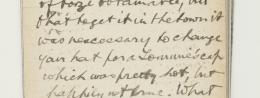 of booze obtainable, but
that to get it in the town it
was nescessary to change
your hat for a Commie's cap
which was pretty hot, but
happily not true. What